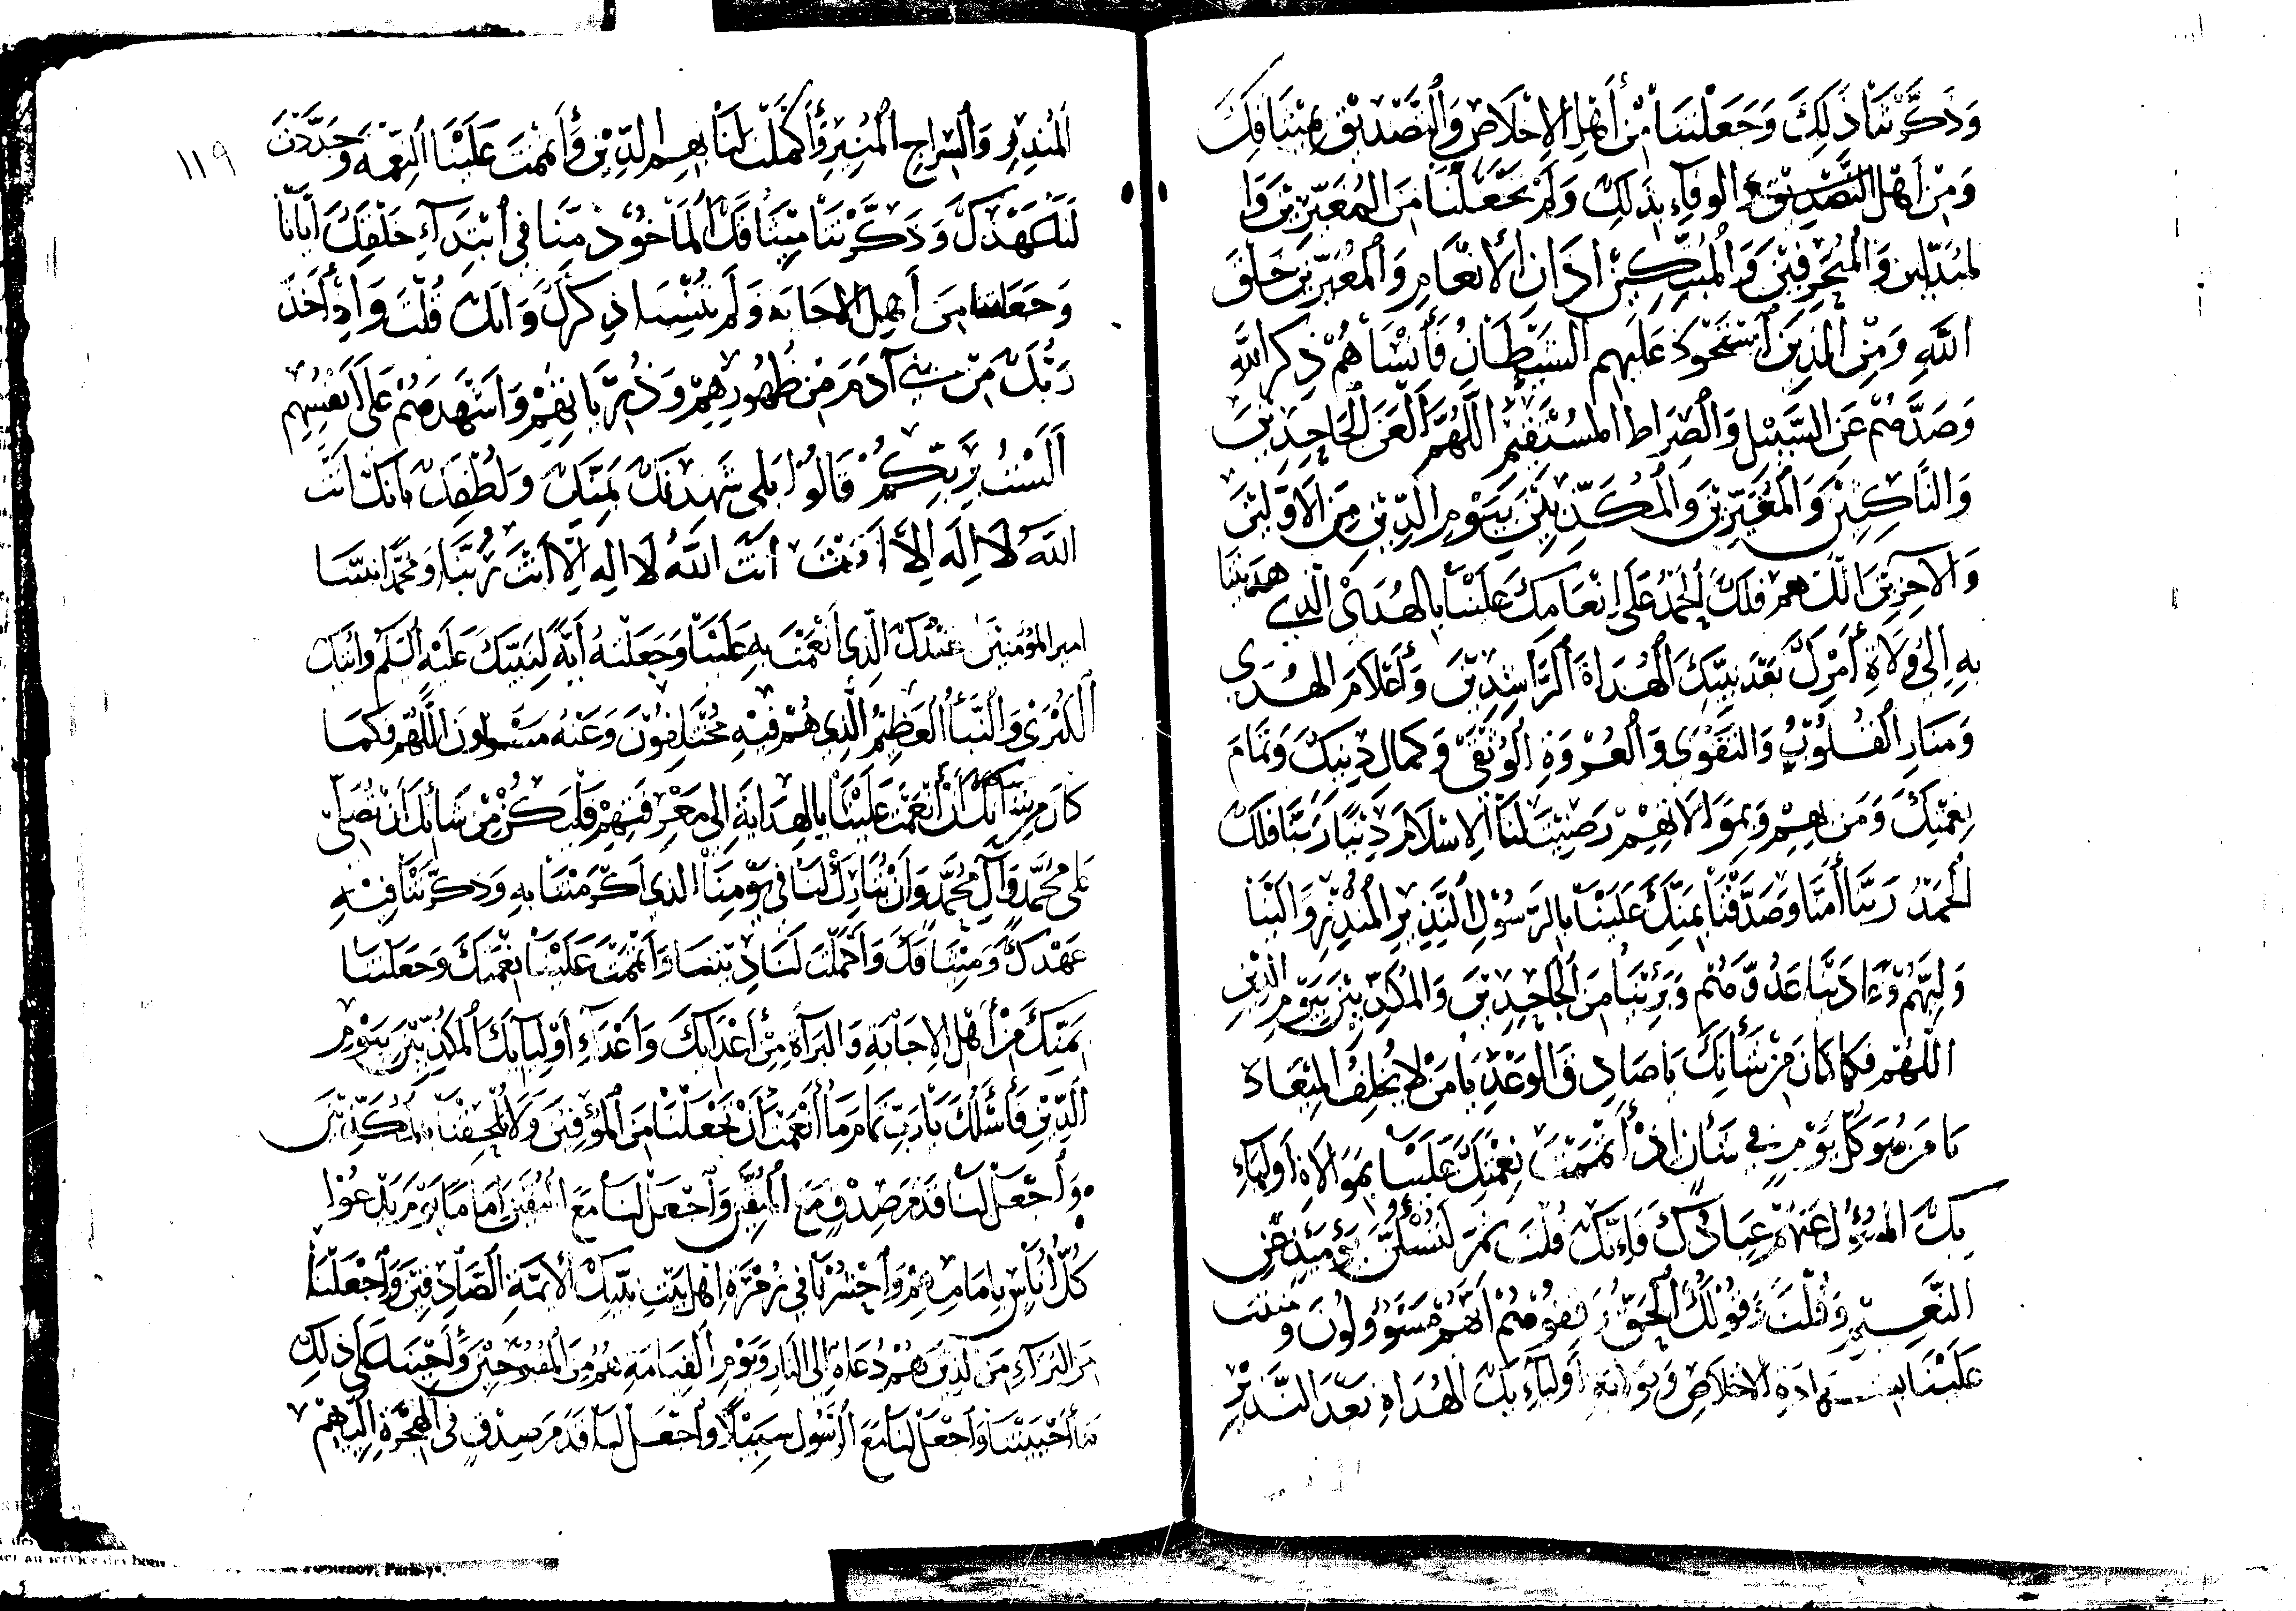 وَذَكَّرْتَنَا ذَلِكَ وَجَعَلْتَنَا مِنْ أَهْلِ الْإِخْلَاصِ وَالتَّصْدِيْقِ بِمِيْثَاقِكَ
وَمِنْ أَهْلِ التَّصْدِيْقِ وَالوَفَاءِ بِذَلِكَ وَلَمْ تَجْعَلْنَا مِنَ الْمُغَيِّرِيْنَ وَا
لمُبَدِّلِيْنَ وَالْمُحَرِّفِيْنَ وَالْمُبَتِّكِيْنَ اذَانَ الْأَنْعَامِ وَالْمُغَيِّرِيْنَ خَلْقَ
اللَّهِ وَمِنَ الَّذِيْنَ اسْتَحْوَذَ عَلَيْهِمُ الشَّيْطَانُ فَأَنْسَاهُمْ ذِكْرَ اللَّهِ
وَصَدَّهُمْ عَنِ السَّبِيْلِ وَالْصِّرَاطِ الْمُسْتَقِيْمِ اللَّهُمَّ الْعَنِ الْجَاحِدِيْنَ
وَالنَّاكِثِيْنَ وَالْمُغَيِّرِيْنَ وَالْمُكَذِّبِيْنَ بِيَوْمِ الدِّيْنِ مِنَ الْأَوَّلِيْنَ
وَالْآخِرِيْنَ اللَّهُمَّ فَلَكَ الْحَمْدُ عَلَى إِنْعَامِكَ عَلَيْنَا بِالْهُدَى الَّذِي هَدَيْتَنَا
بِهِ إِلَى وُلَاةِ أَمْرِكَ بَعْدَ نَبِيِّكَ الْهُدَاةَ الرَّاشِدِيْنَ وَأَعْلَامَ الْهُدَى
وَمَنَارِ الْقُلُوْبِ وَالتَّقْوَى وَالْعُرْوَةِ الْوُثْقَى وَكَمَالِ دِيْنِكَ وَتَمَامِ
نِعْمَتِكَ وَمَنْ بِهِمْ وَبِمَوَالَاتِهِمْ رَضِيْتَ لَنَا الْإِسْلَامَ دِيْنًا رَبَّنَا فَلَكَ
الْحَمْدُ رَبَّنَا أَمَنَّا وَصَدَّقْنَا بِمَنِّكَ عَلَيْنَا بِالرَّسُوْلِ النَّذِيْرِ الْمُنْذِرِ وَالَيْنَا
وَلِيَّهُمْ وَعَادَيْنَا عَدُوَّهُمْ وَبَرِئْنَا مِنَ الْجَاحِدِيْنَ وَالْمُكَذِّبِيْنَ بِيَوْمِ الدِّيْنِ
اللَّهُمَّ فَكَمَا كَانَ مِنْ شَأْنِكَ يَا صَادِقَ الْوَعْدِ يَا مَنْ لَا يُخْلِفُ الْمِيْعَادَ
يَا مَنْ هُوَ كُلَّ يَوْمٍ فِي شَأْنٍ اذْ أَتْمَمْتَ نِعْمَتِكَ عَلَيْنَا بِمَوَالَاةِ أَوْلِيَاءِ
يِكَ الْمَسْؤُلِ عَنْهُمْ عِبَادُكَ فَإِنَّكَ قُلْتَ ثُمَّ لَتُسْئَلُنَّ يَوْمَئِذٍ عَنِ
النَّعِيْمِ وَقُلْتَ وَقَوْلُكَ الْحَقُّ وَقِفُوْهُمْ انَّهُمْ مَسْؤُولُوْنَ وَمَنَنْتَ
عَلَيْنَا بِشَهَادَةِ الْاخْلَاصِ وَبِوَلَايَةِ أَوْلِيَاءِيكَ الْهُدَاةِ بَعْدَ النَّذِيْرِ
١١٩
الْمُنْذِرِ وَالسِّرَاجِ الْمُنِيْرِ وَأَكْمَلْتَ لَنَا بِهِمِ الدِّيْنَ وَأَتْمَمْتَ عَلَيْنَا النِّعْمَةَ وَجَدَّدْتَ
لَنَا عَهْدَكَ وَذَكَّرْتَنَا مِيْثَاقَكَ الْمَأْخُوْذَ مِنَّا فِي ابْتِدَاءِ خَلْقِكَ ايَّانَا
وَجَعَلْتَنَا مِنْ أَهْلِ الْاجَابَةِ وَلَمْ تُنْسِنَا ذِكْرَكَ وَانَّكَ قُلْتَ وَاذْ أَخَذَ
رَبُّكَ مِنْ بَنِي آدَمَ مِنْ ظُهُورِهِمْ وَذُرِّيَّاتِهِمْ وَاَشْهَدَهُمْ عَلَى أَنْفُسِهِمْ
اَلَسْتُ بِرَبِّكُمْ قَالُوْا بَلَى شَهِدْنَا بِمَنِّكَ وَلُطْفِكَ بِاَنَّكَ اَنْتَ
اللَّهُ لَا اِلَهَ اِلَّا أَنْتَ أَنْتَ اللَّهُ لَا اِلَهَ اِلَّا أَنْتَ رَبُّنَا وَمُحَمَّدًا نَبِيَّنَا
امير المُؤْمِنِيْنَ عَبْدُكَ الَّذِي أَنْعَمْتَ بِهِ عَلَيْنَا وَجَعَلْتَهُ أَيَةً لِنَبِيِّكَ عَلَيْهِ السَّلَمُ وَايَتَكَ
الْكُبْرَى وَالنَّبَأُ الْعَظِيْمُ الَّذِي هُمْ فِيْهِ مُخْتَلِفُوْنَ وَعَنْهُ مَسْؤُلُونَ اللَّهُمَّ فَكَمَا
كَانَ مِنْ شَأْنِكَ أَنْ أَنْعَمْتَ عَلَيْنَا بِالْهِدَايَةِ اِلَى مَعْرِفَتِهِمْ فَلْيَكُنْ مِنْ شَأْنِكَ أَنْ تُصَلِّيَ
عَلَى مُحَمَّدٍ وَآلِ مُحَمَّدٍ وَاَنْ تُبَارِكَ لَنَا فِي يَوْمِنَا الَّذِي أَكْرَمْتَنَا بِهِ وَذَكَّرْتَنَا فِيْهِ
عَهْدَكَ وَمِيْثَاقَكَ وَأَكْمَلْتَ لَنَا دِيْنَنَا وَأَتْمَمْتَ عَلَيْنَا نِعْمَتَكَ وَجَعَلْتَنَا
بِمَنِّكَ مِنْ أَهْلِ الْاِجَابَةِ وَالْبَرَاءَةِ مِنْ أَعْدَائِكَ وَأَعْدَاءِ أَوْلِيَائِكَ الْمُكَذِّبِيْنَ بِيَوْمِ
الدِّيْنِ فَأَسْئَلُكَ يَا رَبِّ تَمَامَ مَا أَنْعَمْتَ أَنْ تَجْعَلَنَا مِنَ الْمُوْفِيْنَ وَلَا تُلْحِقْنَا بِالْمُكَذِّبِيْنَ
وَأجْعَلْ لَنَا قَدَمَ صِدْقٍ مَعَ الْمُتَّقِيْنَ وَاجْعَلْ لَنَا مَعَ الْمُتَّقِيْنَ اِمَامًا يَوْمَ يَدْعُوْا
كُلَّ أُنَاسٍ بِاِمَامِهِمْ وَاحْشُرْنَا فِي زُمْرَةِ اهْلِ بَيْتِ نَبِيِّكَ الْأَئِمَّةِ الصَّادِقِيْنَ وَاجْعَلْنَا
مِنَ الْبُرَآءِ مِنَ الَّذِيْنَ هُمْ دُعَاةٌ اِلَى النَّارِ وَيَوْمَ الْقِيَامَةِ هُمْ مِنَ الْمَقْبُوحِيْنَ وَأَحْيِنَا عَلَى ذَلِكَ
مَا أَحْيَيْتَنَا وَاجْعَلْ لَنَا مَعَ الرَّسُولِ سَبِيْلًا وَاجْعَلْ لَنَا قَدَمَ صِدْقٍ فِي الْهِجْرَةِ اِلَيْهِمْ